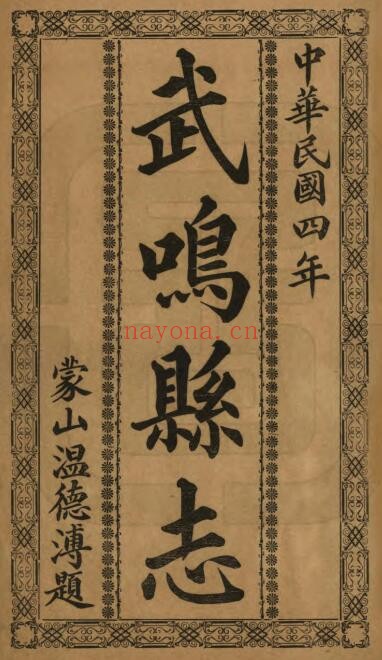 中華民國四年
武鳴縣志
蒙山温德溥題
nayona.cn